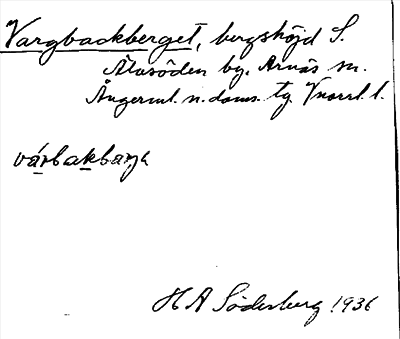 Vargbackberget, bergshöjd S.
Älvsöden by, Arnäs sn.
Ångerml. n. doms. tg Vnorrl. l.
várbakbarȷ̨a
H A Söderberg 1936